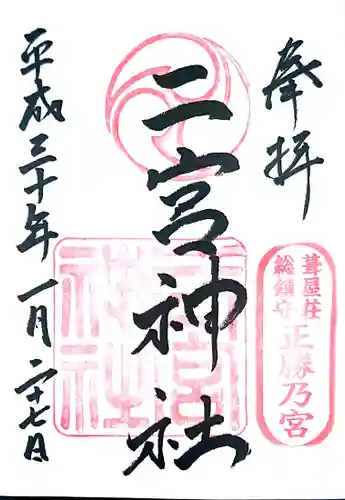 奉拝
葺屋荘
総鎮守
正勝乃宮
二宮神社
二宮神社
平成三十年一月二十七日